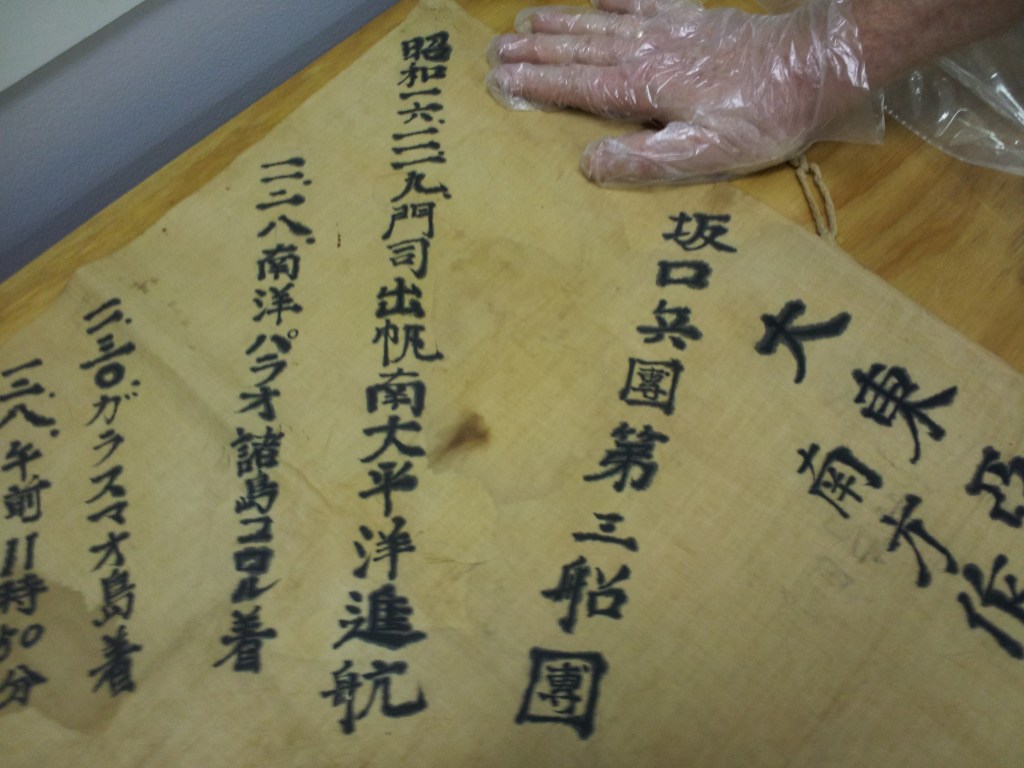 大東亞
南方作
坂口兵團第三船團
昭和一六.一一.一九.門司出帆南大平洋進航
一一.二八.南洋パラオ諸島コロル着
一一.三〇.ガラスマオ島着
一二.八.午前11時50分